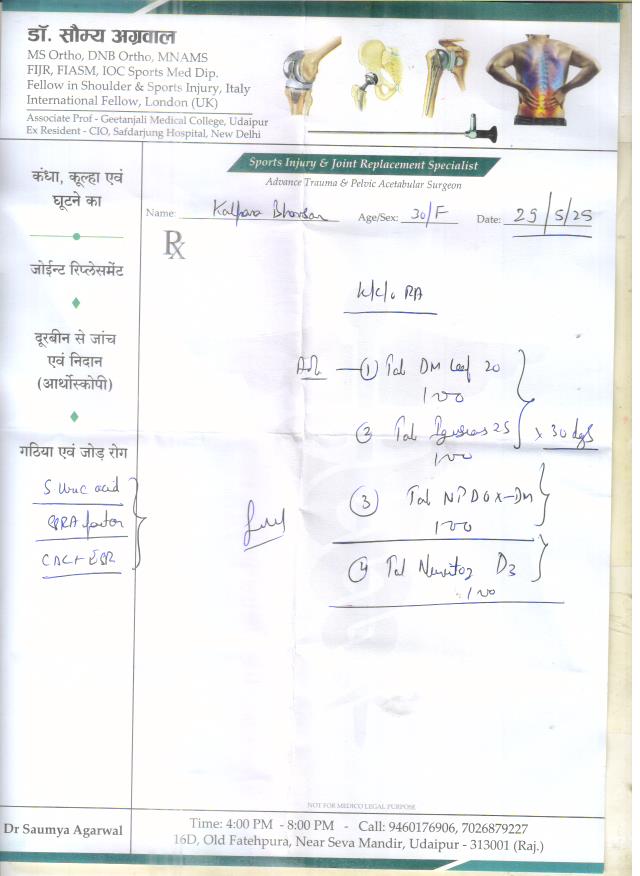 डॉ. सौम्य अग्रवाल
MS Ortho, DNB Ortho, MNAMS
FIJR, FIASM, IOC Sports Med Dip.
Fellow in Shoulder & Sports Injury, Italy
International Fellow, London (UK)
Associate Prof - Geetanjali Medical College, Udaipur
Ex Resident - CIO, Safdarjung Hospital, New Delhi
Sports Injury & Joint Replacement Specialist
Advance Trauma & Pelvic Acetabular Surgeon
Name: Kalpana Age/Sex: 30/F Date: 29/5/25
Rx
कंधा, कूल्हा एवं
घूटने का
जोईन्ट रिप्लेसमेंट
दूरबीन से जांच
एवं निदान
(आर्थोस्कोपी)
गठिया एवं जोड़ रोग
S. Uric acid
RA factor
CBC + ESR
K/C/o RA
Adv ① Tab DM 20
1 00
② Tab 25 x 30 days
1 00
③ Tab
1 00
④ Tab D3
1 00
NOT FOR MEDICO LEGAL PURPOSE
Dr Saumya Agarwal
Time: 4:00 PM - 8:00 PM - Call: 9460176906, 7026879227
16D, Old Fatehpura, Near Seva Mandir, Udaipur - 313001 (Raj.)